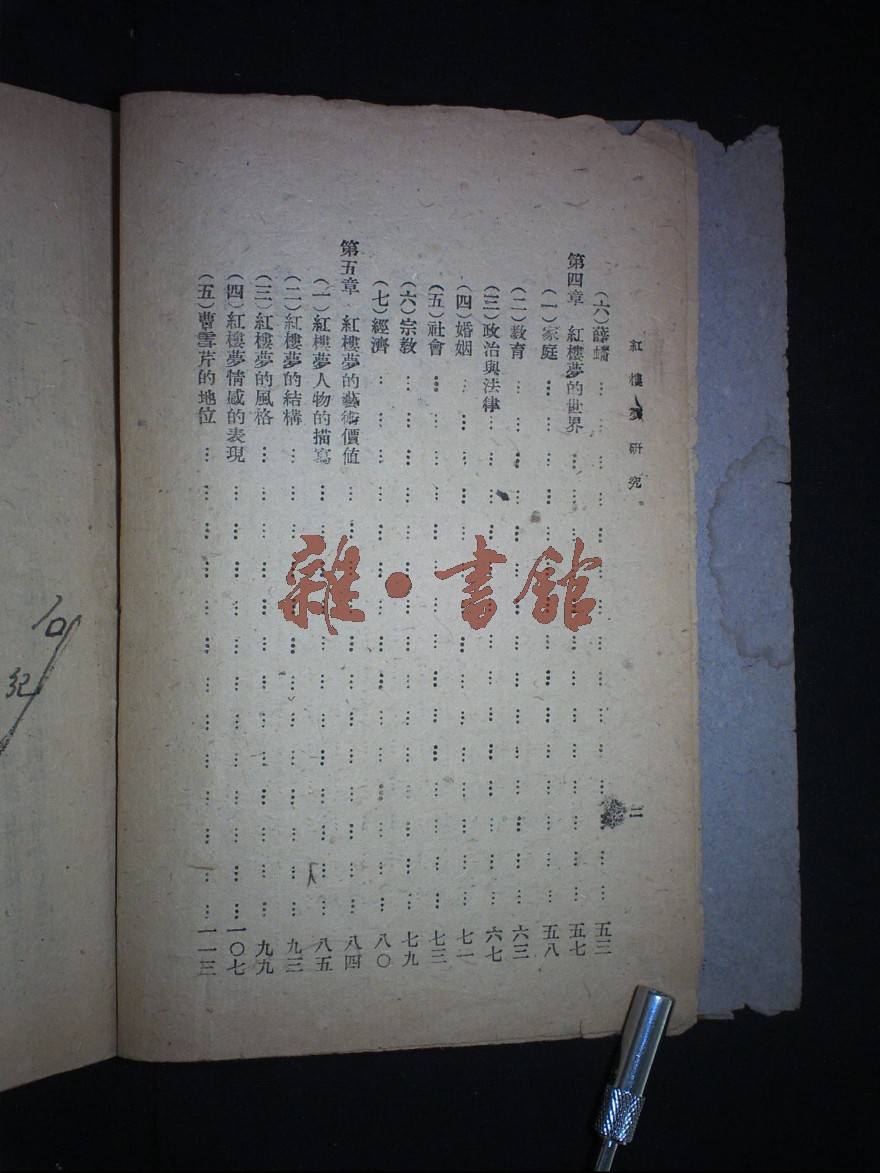 紅樓夢研究
二
（六）薛蟠 … … … … … … … … 五三
第四章 紅樓夢的世界 … … … … … … … 五七
（一）家庭 … … … … … … … … 五八
（二）教育 … … … … … … … … 六三
（三）政治與法律 … … … … … … … 六七
（四）婚姻 … … … … … … … … 七一
（五）社會 … … … … … … … … 七三
（六）宗教 … … … … … … … … 七九
（七）經濟 … … … … … … … … 八〇
第五章 紅樓夢的藝術價值 … … … … … … … 八四
（一）紅樓夢人物的描寫 … … … … … … … 八五
（二）紅樓夢的結構 … … … … … … … 九三
（三）紅樓夢的風格 … … … … … … … 九九
（四）紅樓夢情感的表現 … … … … … … … 一〇七
（五）曹雪芹的地位 … … … … … … … 一一三
雜·書館
紀